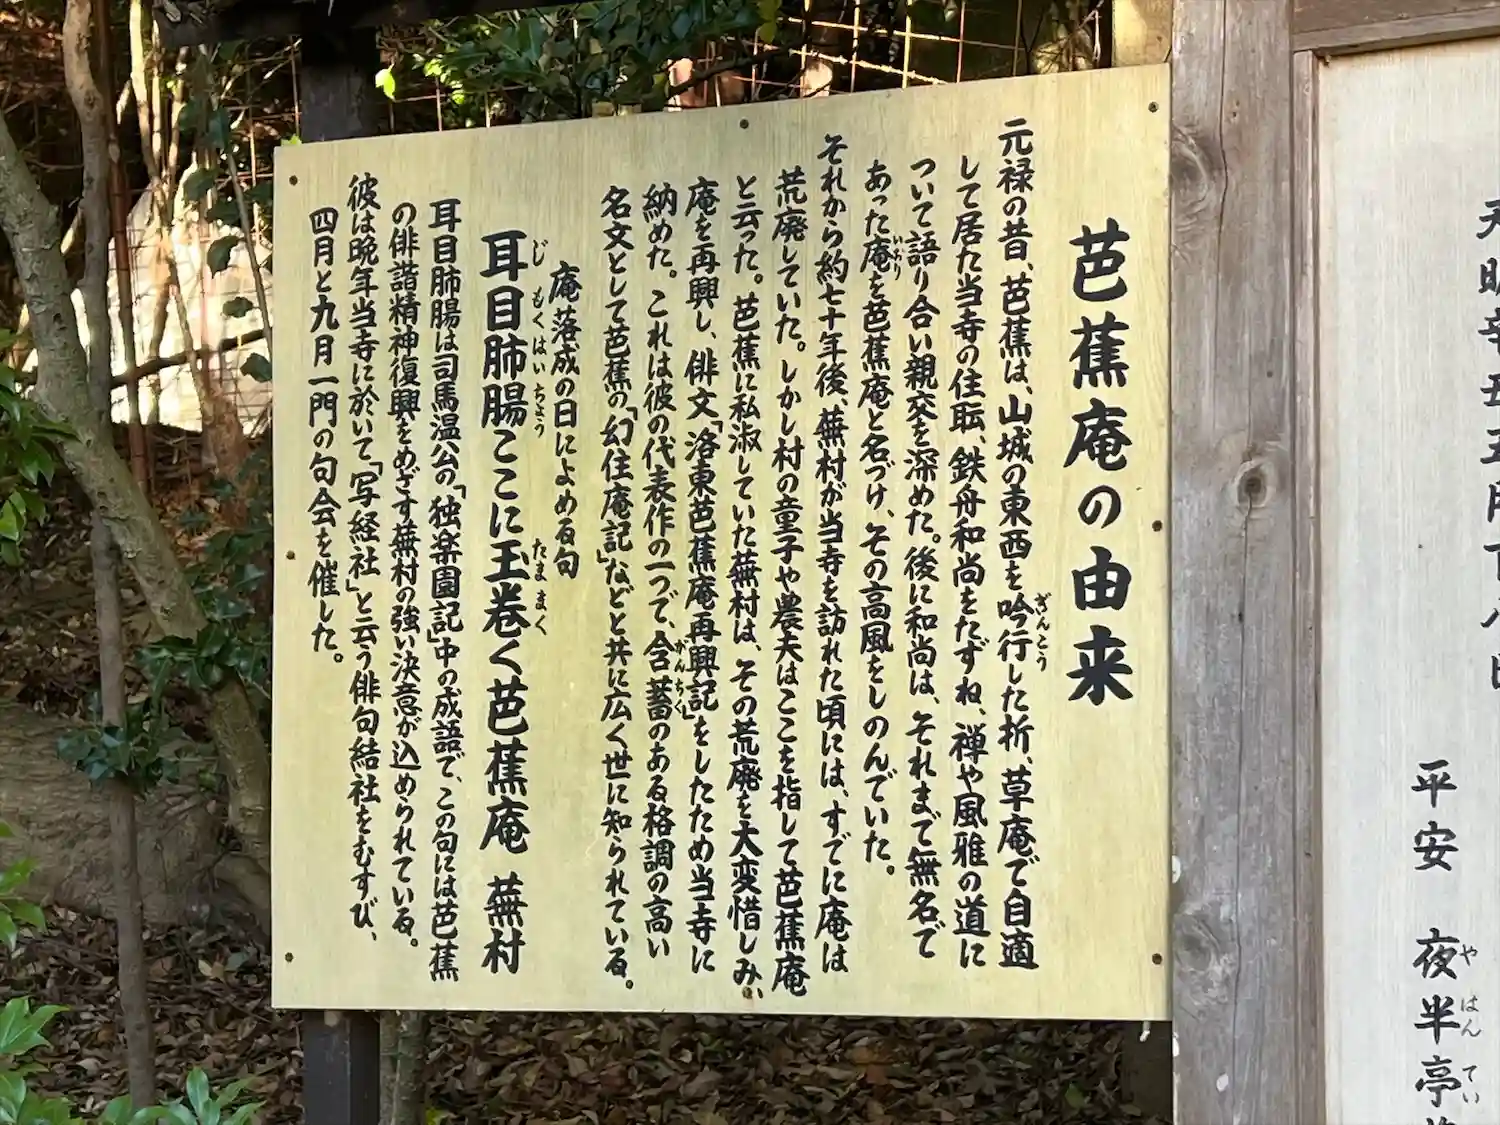 芭蕉庵の由来
元禄の昔、芭蕉は、山城の東西を吟行した折、草庵で自適
ぎんこう
して居た当寺の住職、鉄舟和尚をたずね、禅や風雅の道に
ついて語り合い親交を深めた。後に和尚は、それまで無名で
あった庵を芭蕉庵と名づけ、その高風をしのんでいた。
いおり
それから約七十年後、蕪村が当寺を訪れた頃には、すでに庵は
荒廃していた。しかし村の童子や農夫はここを指して芭蕉庵
と云った。芭蕉に私淑していた蕪村は、その荒廃を大変惜しみ、
庵を再興し、俳文「洛東芭蕉庵再興記」をしたため当寺に
納めた。これは彼の代表作の一つで、含蓄のある格調の高い
がんちく
名文として芭蕉の「幻住庵記」などと共に広く世に知られている。
庵落成の日によめる句
耳目肺腸ここに玉巻く芭蕉庵 蕪村
じもくはいちょう たままく
耳目肺腸は司馬温公の「独楽園記」中の成語で、この句には芭蕉
の俳諧精神復興をめざす蕪村の強い決意が込められている。
彼は晩年当寺に於いて「写経社」と云う俳句結社をむすび、
四月と九月一門の句会を催した。
平安 夜半亭
やはんてい